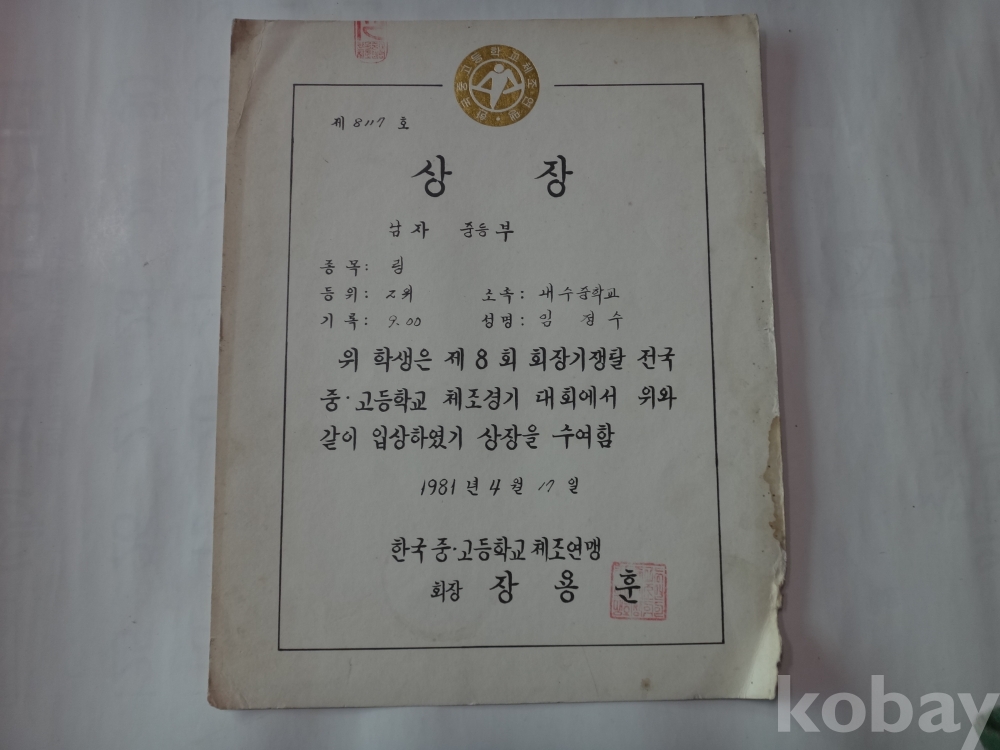 한국중고등학교체조연맹
제 8117 호
상 장
남자 중등부
종목: 링
등위: 2위 소속: 내수중학교
기록: 9.00 성명: 임 경 수
위 학생은 제 8 회 회장기쟁탈 전국
중·고등학교 체조경기 대회에서 위와
같이 입상하였기 상장을 수여함
1981 년 4 월 17 일
한국 중·고등학교 체조연맹
회장 장 용 훈
kobay